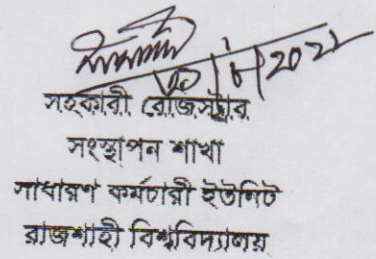 সহকারী রেজিস্ট্রার
সংস্থাপন শাখা
সাধারণ কর্মচারী ইউনিট
রাজশাহী বিশ্ববিদ্যালয়